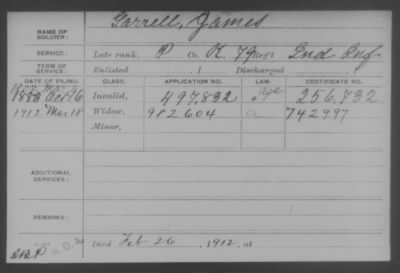 NAME OF SOLDIER: Garrell, James
SERVICE: Late rank, P Co. K, 79 Reg't Ind Inf
TERM OF SERVICE: Enlisted , 1 Discharged , 1
DATE OF FILING. CLASS. APPLICATION NO. LAW. CERTIFICATE NO.
Oct 6 Invalid, 497,832 Age 256,732
1912 Mar 18 Widow, 982604 742997
Minor,
ADDITIONAL SERVICES:
REMARKS:
Died Feb 26, 1912, at